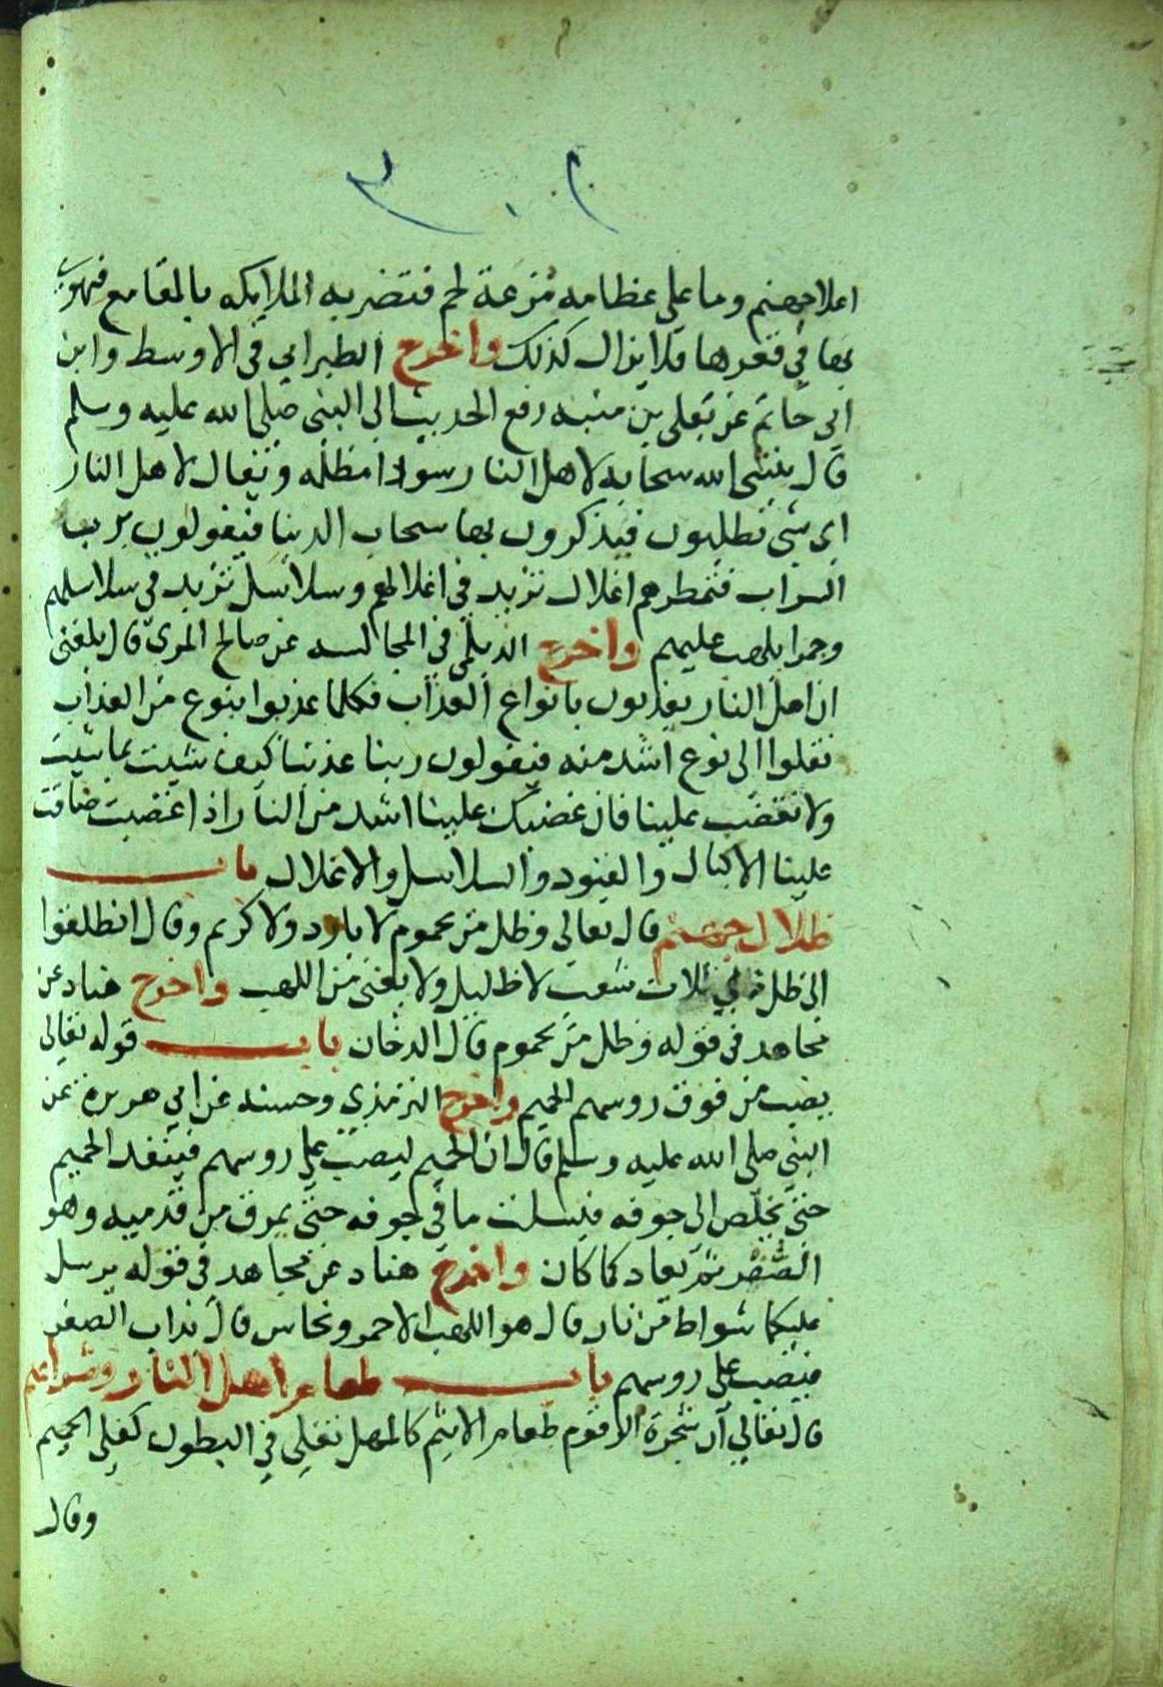 اعلا جهنم وما على عظامه مزعة لحم فتضربه الملايكه بالمقامع فيهوي
بها في قعرها فلا يزال كذلك واخرج الطبراني في الاوسط وابن
ابي حاتم عن يعلى بن منبه رفع الحديث الى النبي صلى الله عليه وسلم
قال ينشى الله سحابه لاهل النار سودا مظلمه ويقال لاهل النار
اي شي تطلبون فيذكرون بها سحاب الدنيا فيقولون يرب
الشراب فتمطرهم اغلال تزيد في اغلالهم وسلاسل تزيد في سلاسلهم
وجمرا يلهب عليهم واخرج الديلمي في المجالسه عن صالح المري قال بلغني
ان اهل النار يعذبون بانواع العذاب فكلما عذبوا بنوع من العذاب
نقلوا الى نوع اشد منه فيقولون ربنا عذبنا كيف شيت بما شيت
ولا تغضب علينا فان غضبك علينا اشد من النار اذا غضبت ضاقت
علينا الاكبال والقيود والسلاسل والاغلال باب
ظلال جهنم قال تعالى وظل من يحموم لا بارد ولا كريم وقال انطلقوا
الى ظل ذي ثلاث شعب لا ظليل ولا يغنى من اللهب واخرج هناد عن
مجاهد في قوله وظل من يحموم قال الدخان باب قوله تعالى
يصب من فوق روسهم الحميم واخرج الترمذي وحسنه عن ابي هريرة عن
النبي صلى الله عليه وسلم قال ان الحميم ليصب على روسهم فينفد الحميم
حتى يخلص الى جوفه فيسلت ما في جوفه حتى يمرق من قدميه وهو
الصهر ثم يعاد كما كان واخرج هناد عن مجاهد في قوله يرسل
عليكما شواط من نار قال هو اللهب الاحمر ونحاس قال يذاب الصفر
فيصب على روسهم باب طعام اهل النار وشرابهم
قال تعالى ان شجرة الزقوم طعام الاثيم كالمهل تغلى في البطون كغلى الحميم
وقال